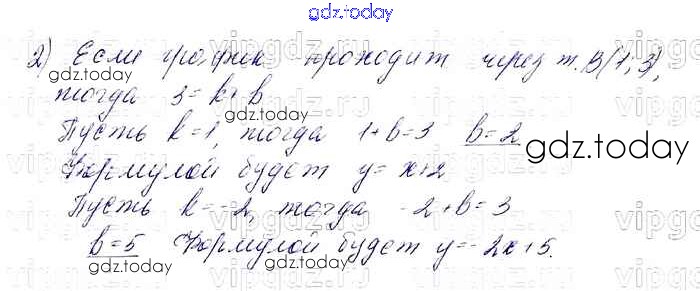 gdz.today
2) Если график проходит через т. В(1; 3),
gdz.today
тогда 3 = k + b
gdz.today
Пусть k = 1, тогда 1 + b = 3 b = 2
gdz.today
Формулой будет y = x + 2
Пусть k = -2, тогда -2 + b = 3
gdz.today
b = 5 Формулой будет y = -2x + 5.
gdz.today
gdz.today